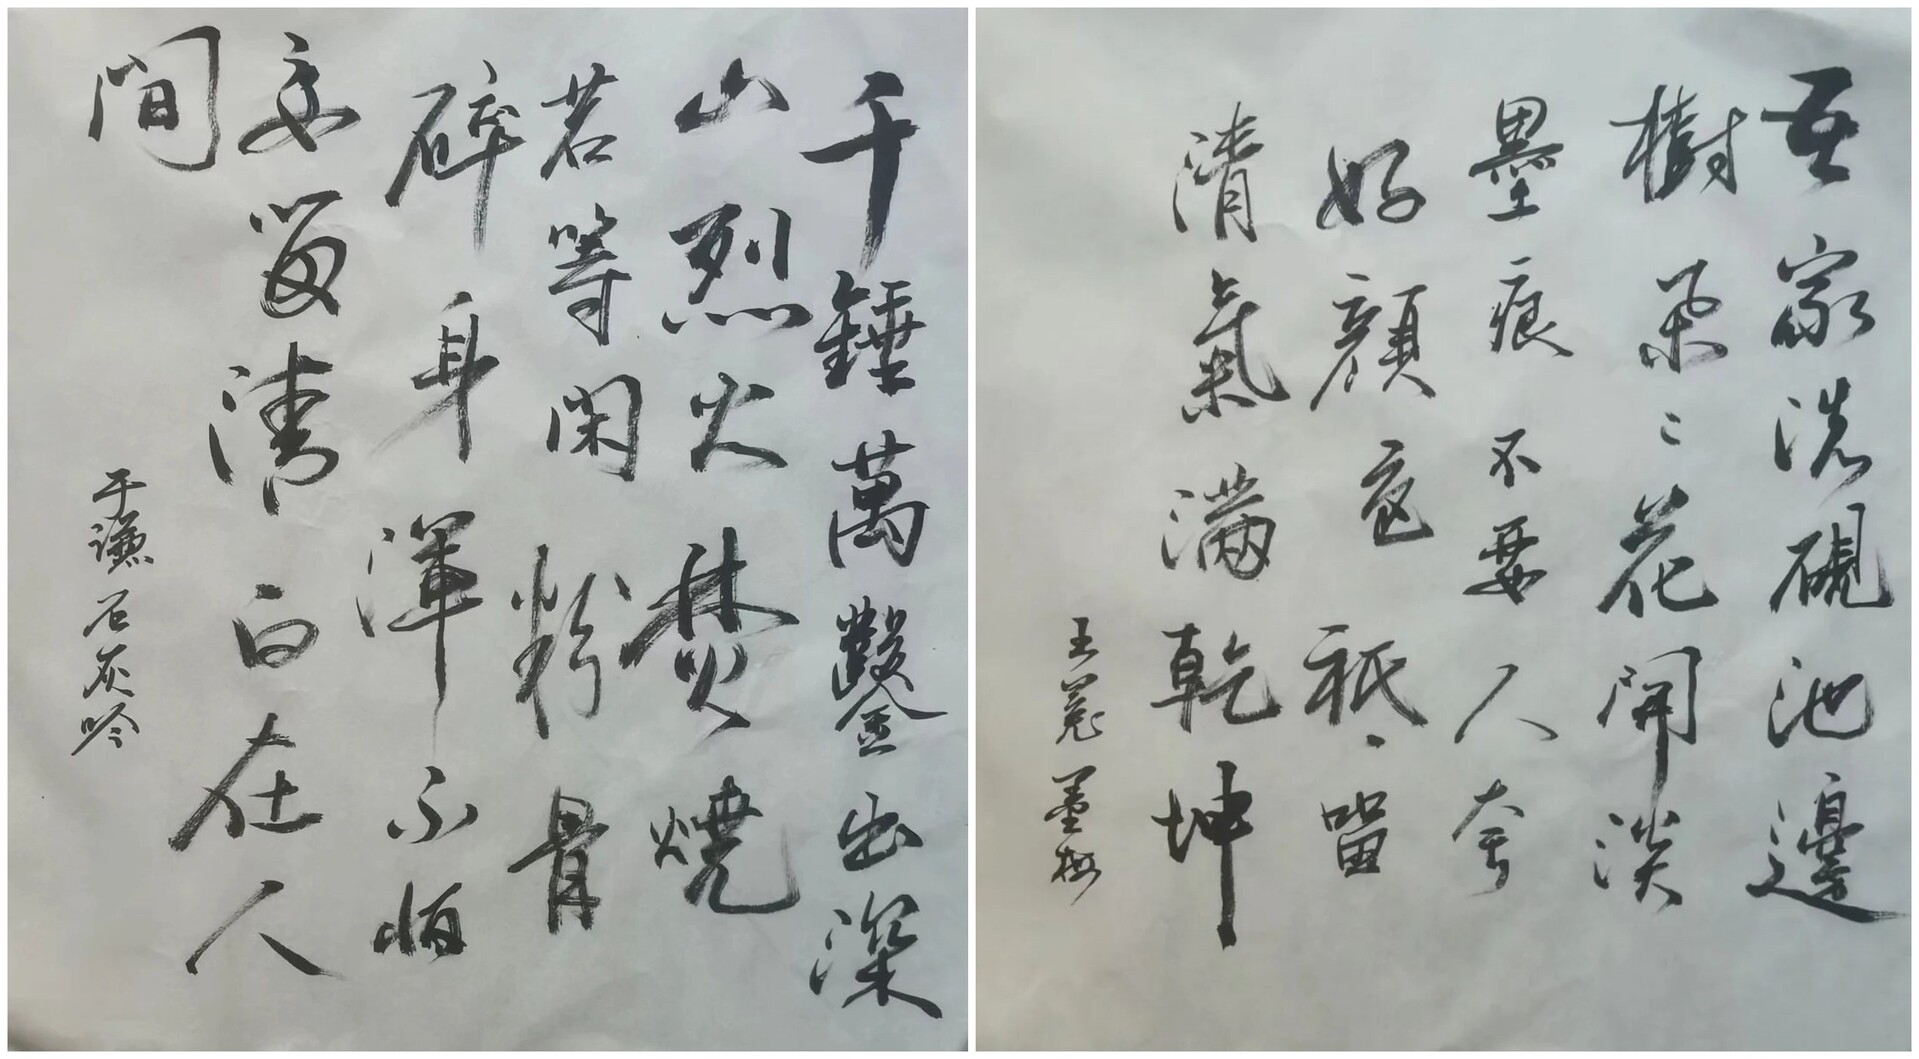 千錘萬鑿出深
山烈火焚燒
若等閑粉骨
碎身渾不怕
要留清白在人
間
于謙石灰吟
吾家洗硯池邊
樹朵々花開淡
墨痕不要人夸
好顏色祇留
清氣滿乾坤
王冕墨梅